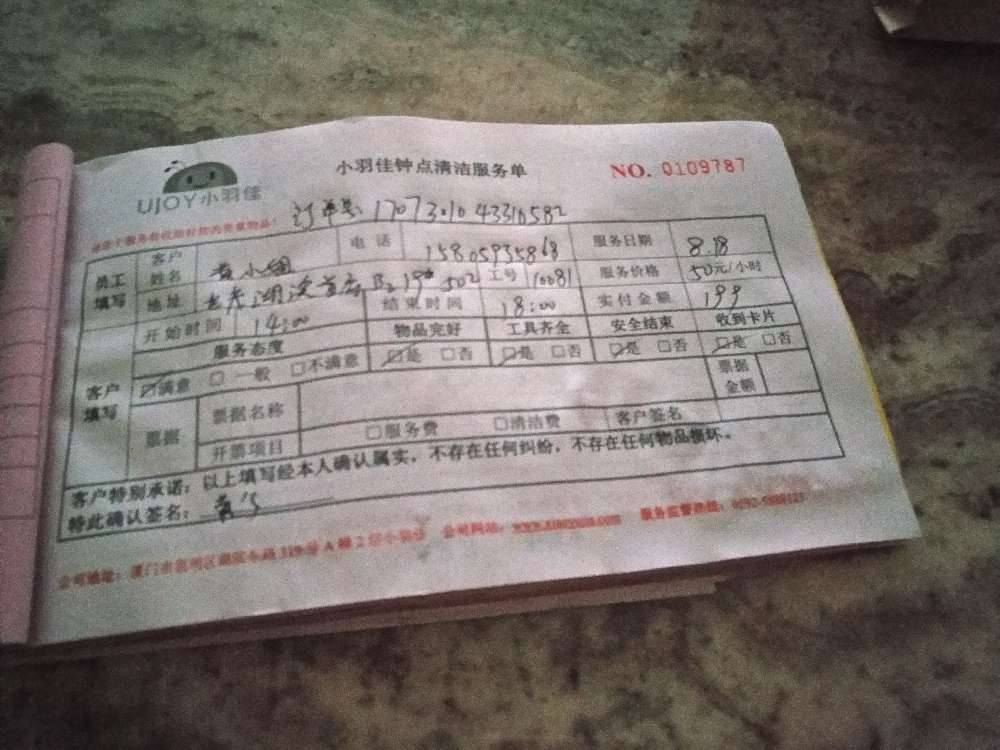 UJOY小羽佳
小羽佳钟点清洁服务单
NO. 0109787
订单号: 1707301043310582
员工填写
客户姓名 黄小姐 电话 15805935868 服务日期 8.18
地址 湖滨首府B2 502 工号 10081 服务价格 50元/小时
开始时间 14:00 结束时间 18:00 实付金额 199
客户填写
服务态度 物品完好 工具齐全 安全结束 收到卡片
☑满意 □一般 □不满意 ☑是 □否 ☑是 □否 ☑是 □否 ☑是 □否
票据 票据名称 票据金额
开票项目 □服务费 □清洁费 客户签名
客户特别承诺：以上填写经本人确认属实，不存在任何纠纷，不存在任何物品损坏。
特此确认签名： 黄
公司地址：厦门市 公司网址： 服务监督热线：